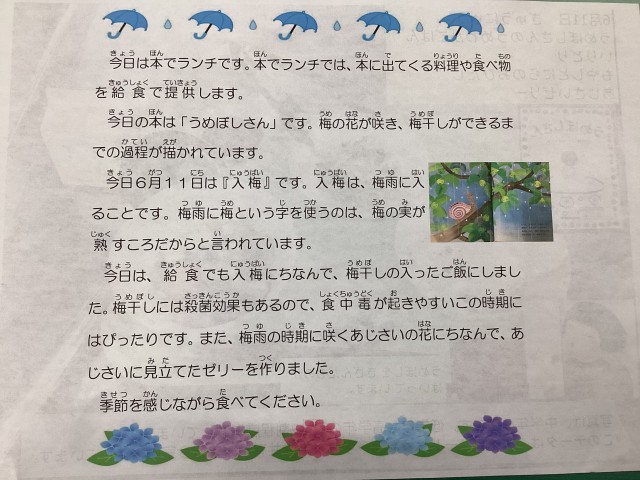 今日は本でランチです。本でランチでは、本に出てくる料理や食べ物
を給食で提供します。
今日の本は「うめぼしさん」です。梅の花が咲き、梅干しができるま
での過程が描かれています。
今日6月11日は『入梅』です。入梅は、梅雨に入
ることです。梅雨に梅という字を使うのは、梅の実が
熟すころだからと言われています。
今日は、給食でも入梅にちなんで、梅干しの入ったご飯にしまし
た。梅干しには殺菌効果もあるので、食中毒が起きやすいこの時期に
はぴったりです。また、梅雨の時期に咲くあじさいの花にちなんで、あ
じさいに見立てたゼリーを作りました。
季節を感じながら食べてください。